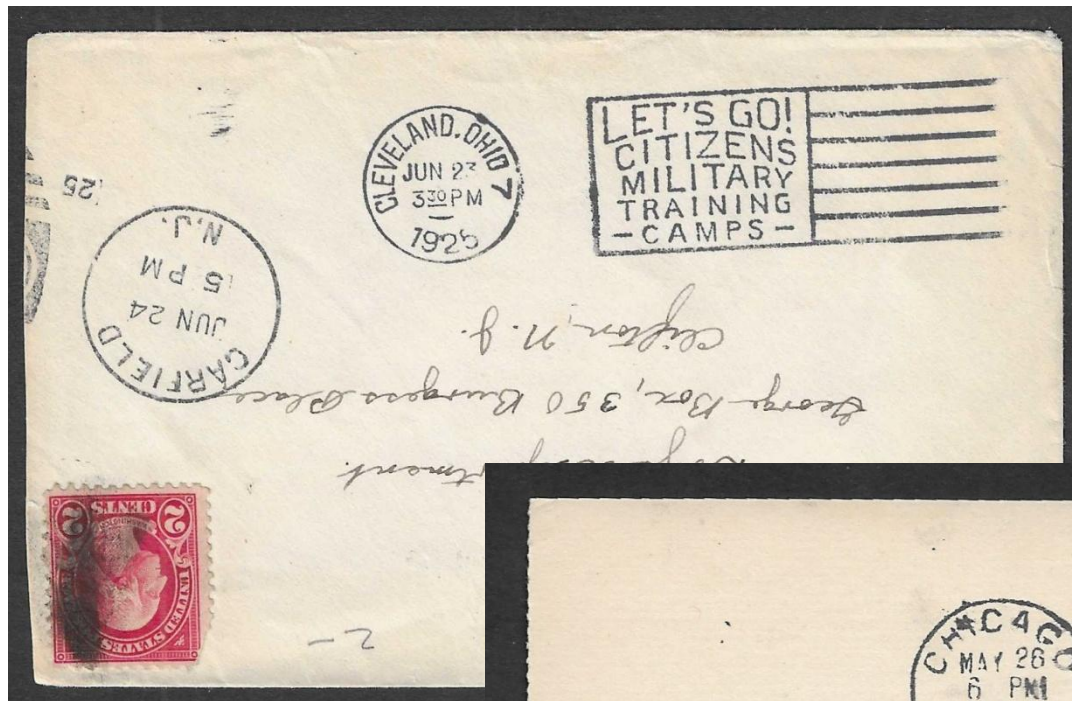 CLEVELAND, OHIO 7
JUN 23
3 30 PM
1925
LET'S GO!
CITIZENS
MILITARY
TRAINING
- CAMPS -
'25
GARFIELD
JUN 24
5 PM
N.J.
George Box, 350 Burgess Place
Clifton, N. J.
UNITED STATES
2 CENTS 2
2-
CHICAGO
MAY 26
6 PM